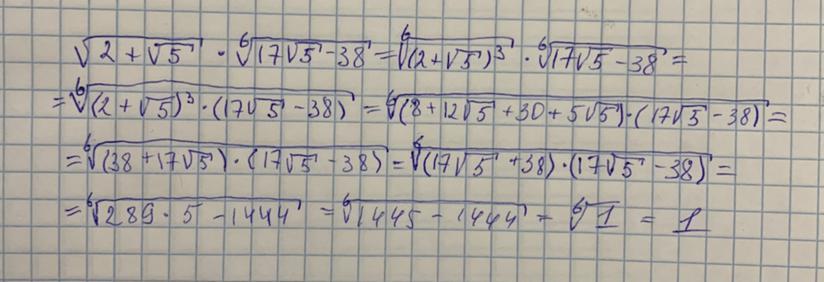 √(2 + √5) · ⁶√(17√5 - 38) = ⁶√((2 + √5)³) · ⁶√(17√5 - 38) =
= ⁶√((2 + √5)³ · (17√5 - 38)) = ⁶√((8 + 12√5 + 30 + 5√5) · (17√5 - 38)) =
= ⁶√((38 + 17√5) · (17√5 - 38)) = ⁶√((17√5 + 38) · (17√5 - 38)) =
= ⁶√(289 · 5 - 1444) = ⁶√(1445 - 1444) = ⁶√1 = 1